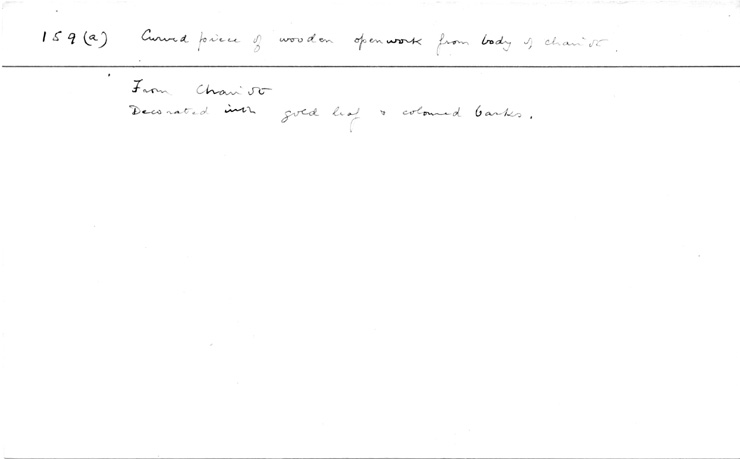 159(a) Curved piece of wooden openwork from body of chariot.
From Chariot
Decorated with gold leaf & coloured barks.